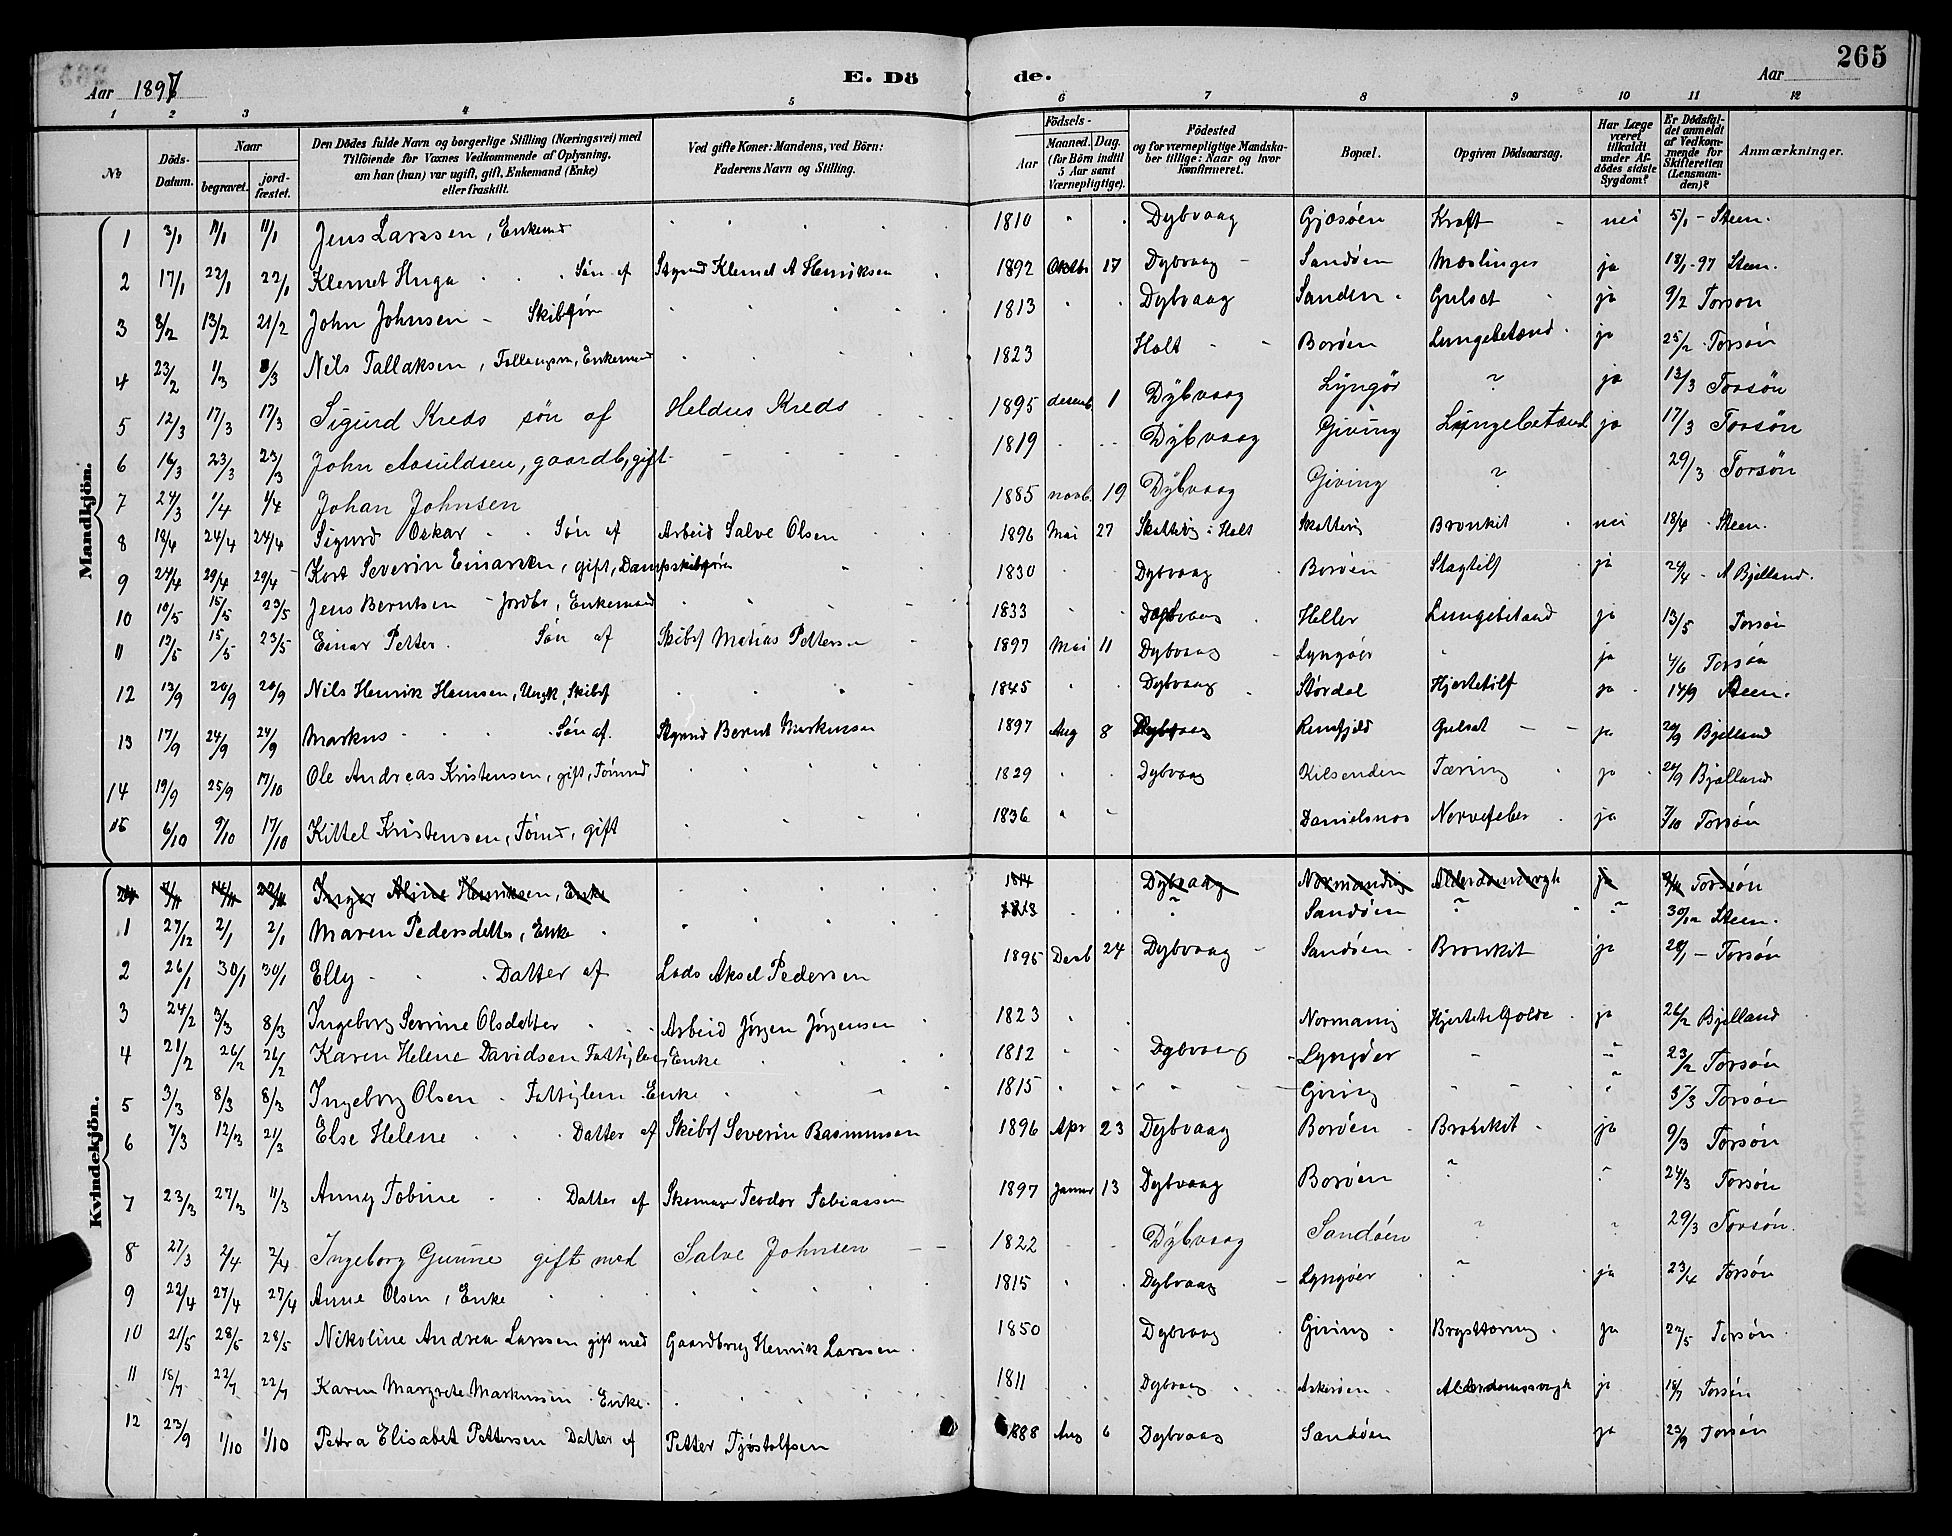 265
Aar 1897 E. Dö de. Aar
1 2 3 4 5 6 7 8 9 10 11 12
No
Döds-Datum.
Naar
begravet. jordfæstet.
Den Dödes fulde Navn og borgerlige Stilling (Næringsvei) med Tilföiende for Voxnes Vedkommende af Oplysning, om han (hun) var ugift, gift, Enkemand (Enke) eller fraskilt.
Ved gifte Koner: Mandens, ved Börn: Faderens Navn og Stilling.
Födsels-
Aar Maaned. Dag.
(for Börn indtil 5 Aar samt Værnepligtige).
Födested og for værnepligtige Mandskaber tillige: Naar og hvor Konfirmeret.
Bopæl.
Opgiven Dödsaarsag.
Har Læge været tilkaldt under Afdödes sidste Sygdom?
Er Dödsfaldet anmeldt af Vedkommende for Skifteretten (Lensmanden)?
Anmærkninger.
Mandkjön.
1 3/1 11/1 11/1 Jens Larssen, Enkemd 1810 Dybvaag Gjæsöen Kraft nei 5/1 - Steen.
2 17/1 22/1 22/1 Klemet Huga Søn af Styrmd Klemet A Henriksen 1892 Oktbr 17 Dybvaag Sandøen Mæslinger ja 18/1-97 Steen.
3 8/2 13/2 21/2 John Johnsen - Skibsfør 1813 Dybvaag Sandøen Gulsot ja 9/2 Torsøn
4 23/2 1/3 8/3 Nils Tallaksen, Enkemand 1823 Holt Borøen Lungebetænd. ja 25/2 Torsøn
5 12/3 17/3 17/3 Sigurd Kreds søn af Heldus Kreds 1895 desemb 1 Dybvaag Lyngør " ja 13/3 Torsøn
6 16/3 23/3 23/3 John Aasuldsen, gaardb, gift 1819 Dybvaag Giving Lungebetænd ja 17/3 Torsøn
7 24/3 1/4 1/4 Johan Johnsen 1885 novb. 19 Dybvaag Giving " 29/3 Torsøn
8 18/4 24/4 24/4 Sigurd Oskar Søn af Arbeid Salve Olsen 1896 Mai 27 i Holt Bronkit nei 18/4 Steen.
9 24/4 29/4 29/4 Kort Severin Einarsen, gift, Dampskibsfører 1830 Dybvaag Borøen Slagtilf ja 24/4 - A Bjelland.
10 10/5 15/5 23/5 Jens Berntsen - Jordbr, Enkemand 1833 Dybvaag Heller Lungebetænd ja 13/5 Torsøn
11 13/5 15/5 23/5 Einar Petter Søn af Skibsf Matias Pettersen 1897 Mai 11 Dybvaag Lyngøer ja 4/6 Torsøn
12 13/9 20/9 20/9 Nils Henrik Hansen, Ungk, Skibsf 1845 Dybvaag Størdal Hjertetilf ja 14/9 Steen.
13 17/9 24/9 24/9 Markus Søn af Styrmd Bernt Markussen 1897 Aug 8 Dybvaag Gulsot ja 20/9 Bjelland
14 19/9 25/9 17/10 Ole Andreas Kristensen, gift, Tømmd 1829 Dybvaag Kilsenden Tæring ja 20/9 Bjelland
15 6/10 9/10 17/10 Kittel Kristensen, Tømd, gift 1836 Danielsnes Nervefeber ja 7/10 Torsøn
Kvindekjön.
Inger Aline Henriksen, Enke 1814 Dybvaag Normanvig Alderdomssvagh ja Torsøn
1 27/12 2/1 2/1 Maren Pedersdatter, Enke 1813 " Sandøen " " 30/12 Steen.
2 26/1 30/1 30/1 Elly Datter af Lods Aksel Pedersen 1895 Desb 24 Dybvaag Sandøen Bronkit ja 28/1 - Torsøn
3 24/2 3/3 8/3 Ingeborg Serine Olsdatter Arbeid Jørgen Jørgensen 1823 Normanvig ja 26/2 Bjelland
4 21/2 26/2 26/2 Karen Helene Davidsen Fattiglem, Enke 1812 Dybvaag Lyngøer - " 23/2 Torsøn
5 3/3 8/3 8/3 Ingeborg Olsen - Fattiglem Enke 1815 " Giving - " 5/3 Torsøn
6 7/3 12/3 21/3 Else Helene Datter af Skibsf Severin Rasmussen 1896 Apr 23 Dybvaag Borøen Bronkit ja 9/3 Torsøn
7 23/3 27/3 11/3 Anny Tobine Datter af Skomager Teodor Tobiassen 1897 Januar 13 Dybvaag Borøen " " 24/3 Torsøn
8 27/3 2/4 2/4 Ingeborg Gunne gift med Salve Johnsen 1822 Dybvaag Sandøen " " 29/3 Torsøn.
9 22/4 27/4 27/4 Anne Olsen, Enke 1815 Dybvaag Lyngøer " ja 23/4 Torsøn
10 21/5 28/5 28/5 Nikoline Andrea Larssen gift med Gaardbrug Henrik Larssen. 1850 Dybvaag Giving ja 22/5 Torsøn.
11 18/7 22/7 22/7 Karen Margrete Markussen Enke. 1811 Dybvaag Askerøen Alderdomssvagh ja 18/7 Torsøn
12 23/9 1/10 1/10 Petra Elisabet Pettersen Datter af Petter Tjøstolfsen 1888 Aug 6 Dybvaag Sandøen ja 23/9 Torsøn